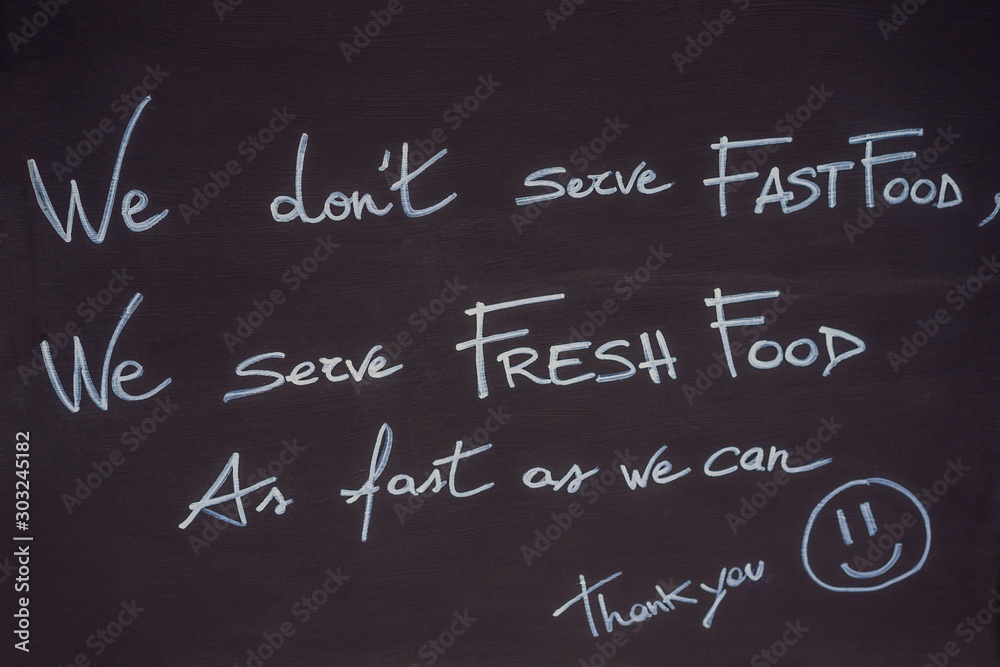 We don't serve FAST FOOD,
We serve FRESH FOOD
As fast as we can
Thank you
Adobe Stock | #303245182